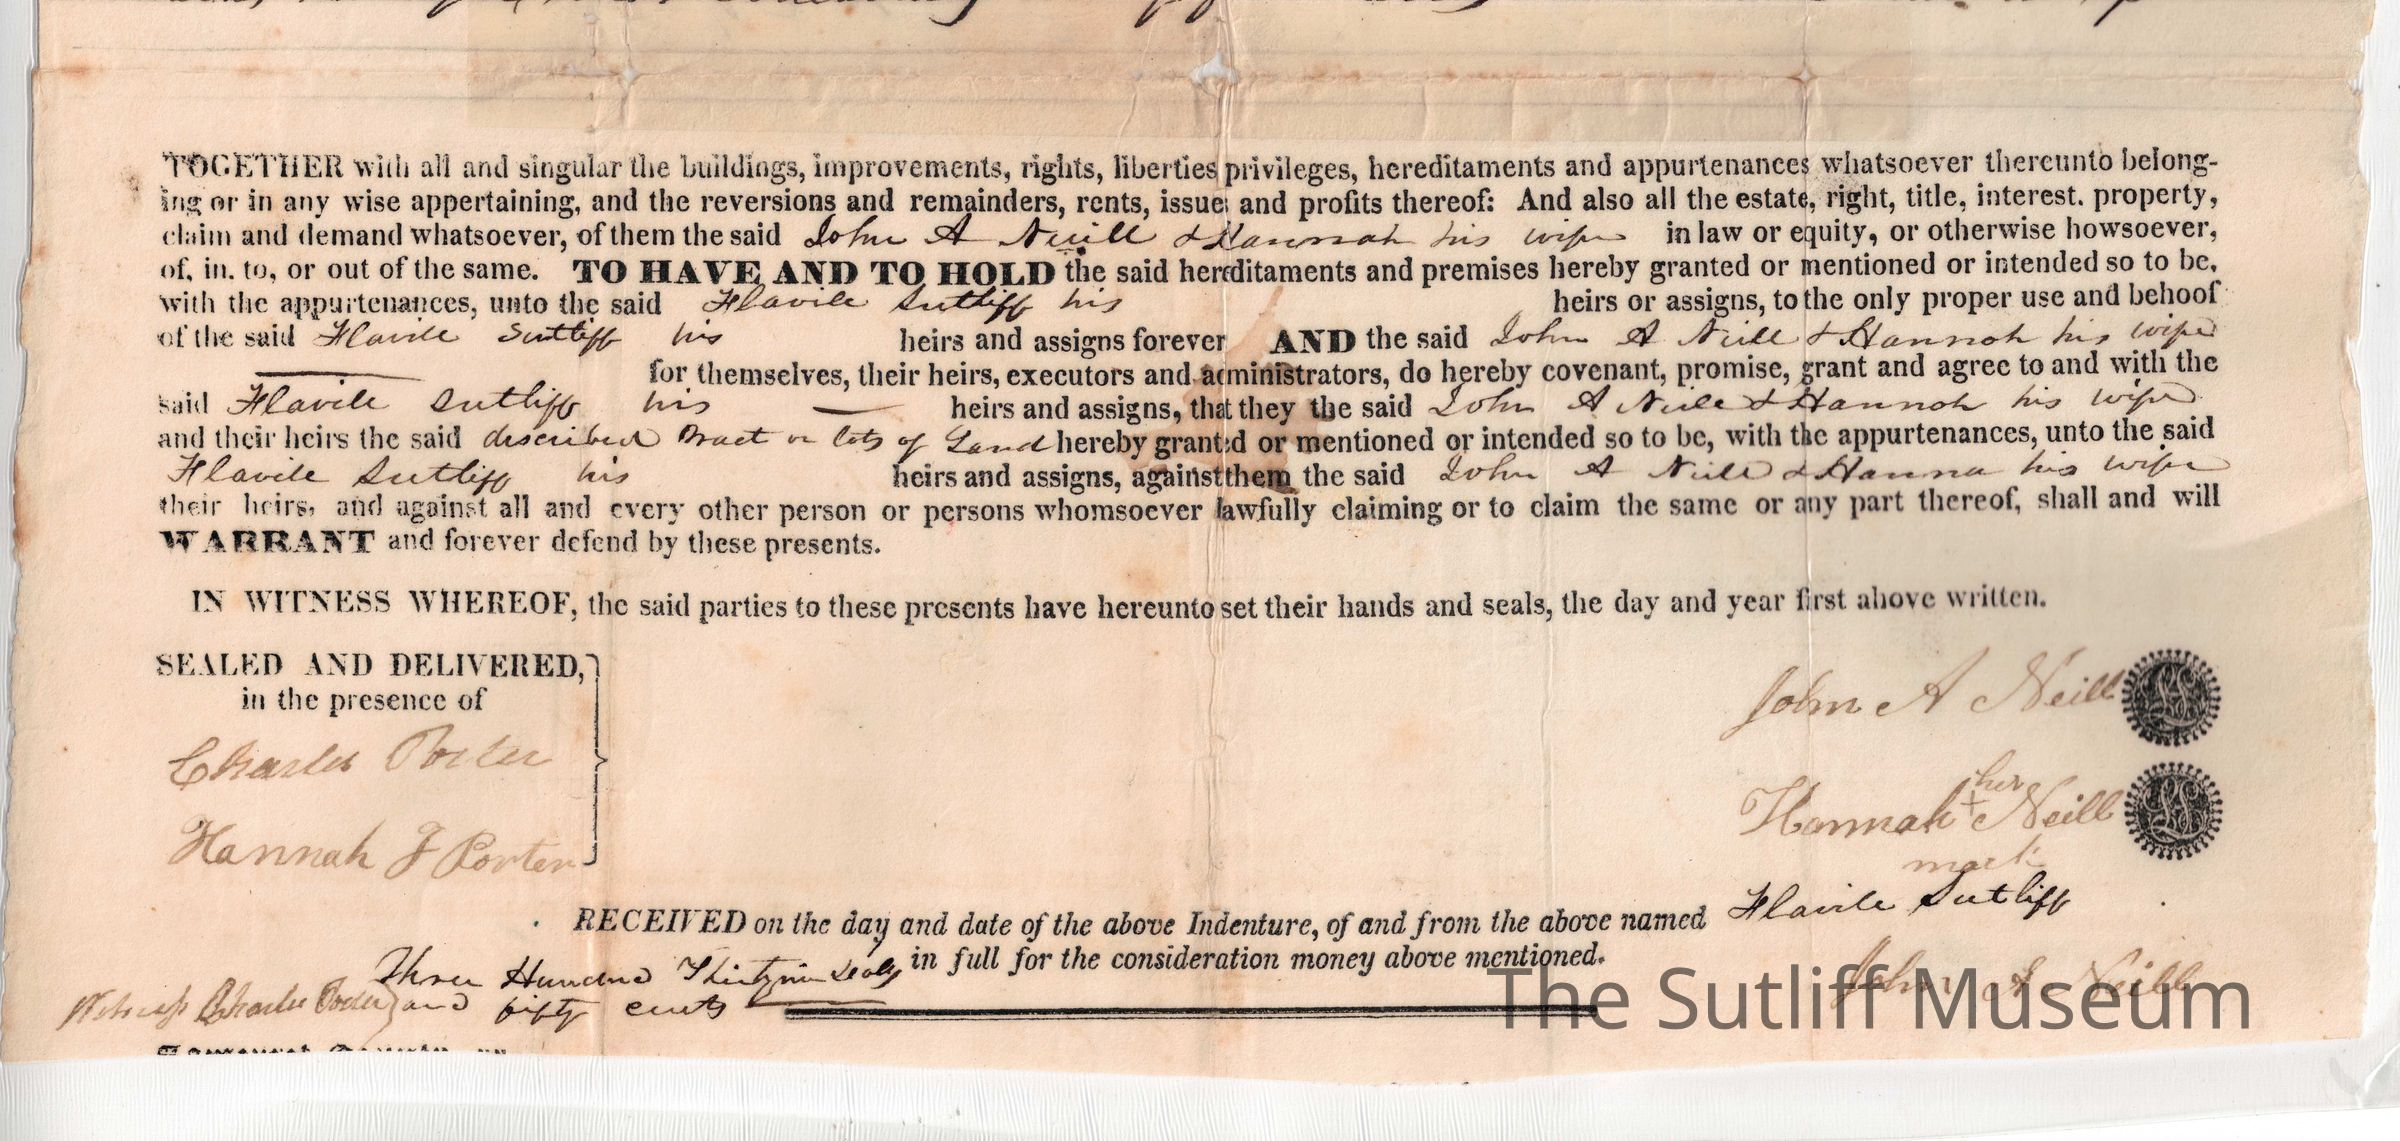 TOGETHER with all and singular the buildings, improvements, rights, liberties privileges, hereditaments and appurtenances whatsoever thereunto belong-
ing or in any wise appertaining, and the reversions and remainders, rents, issues and profits thereof: And also all the estate, right, title, interest. property,
claim and demand whatsoever, of them the said John A Neill & Hannah his wife in law or equity, or otherwise howsoever,
of, in. to, or out of the same. TO HAVE AND TO HOLD the said hereditaments and premises hereby granted or mentioned or intended so to be,
with the appurtenances, unto the said Flavile Sutliff his heirs or assigns, to the only proper use and behoof
of the said Flavile Sutliff his heirs and assigns forever AND the said John A Neill & Hannah his wife
for themselves, their heirs, executors and administrators, do hereby covenant, promise, grant and agree to and with the
said Flavile Sutliff his heirs and assigns, that they the said John A Neill & Hannah his wife
and their heirs the said described Tract or lots of Land hereby granted or mentioned or intended so to be, with the appurtenances, unto the said
Flavile Sutliff his heirs and assigns, against them the said John A Neill & Hanna his wife
their heirs, and against all and every other person or persons whomsoever lawfully claiming or to claim the same or any part thereof, shall and will
WARRANT and forever defend by these presents.
IN WITNESS WHEREOF, the said parties to these presents have hereunto set their hands and seals, the day and year first above written.
SEALED AND DELIVERED,
in the presence of
Charles Porter
Hannah F Porter
John A Neill LS
her
Hannah + Neill LS
mark
RECEIVED on the day and date of the above Indenture, of and from the above named Flavile Sutliff
Three Hundred Thirty nine Dolls in full for the consideration money above mentioned.
and fifty cents
Witness Charles Porter
John A Neill
The Sutliff Museum